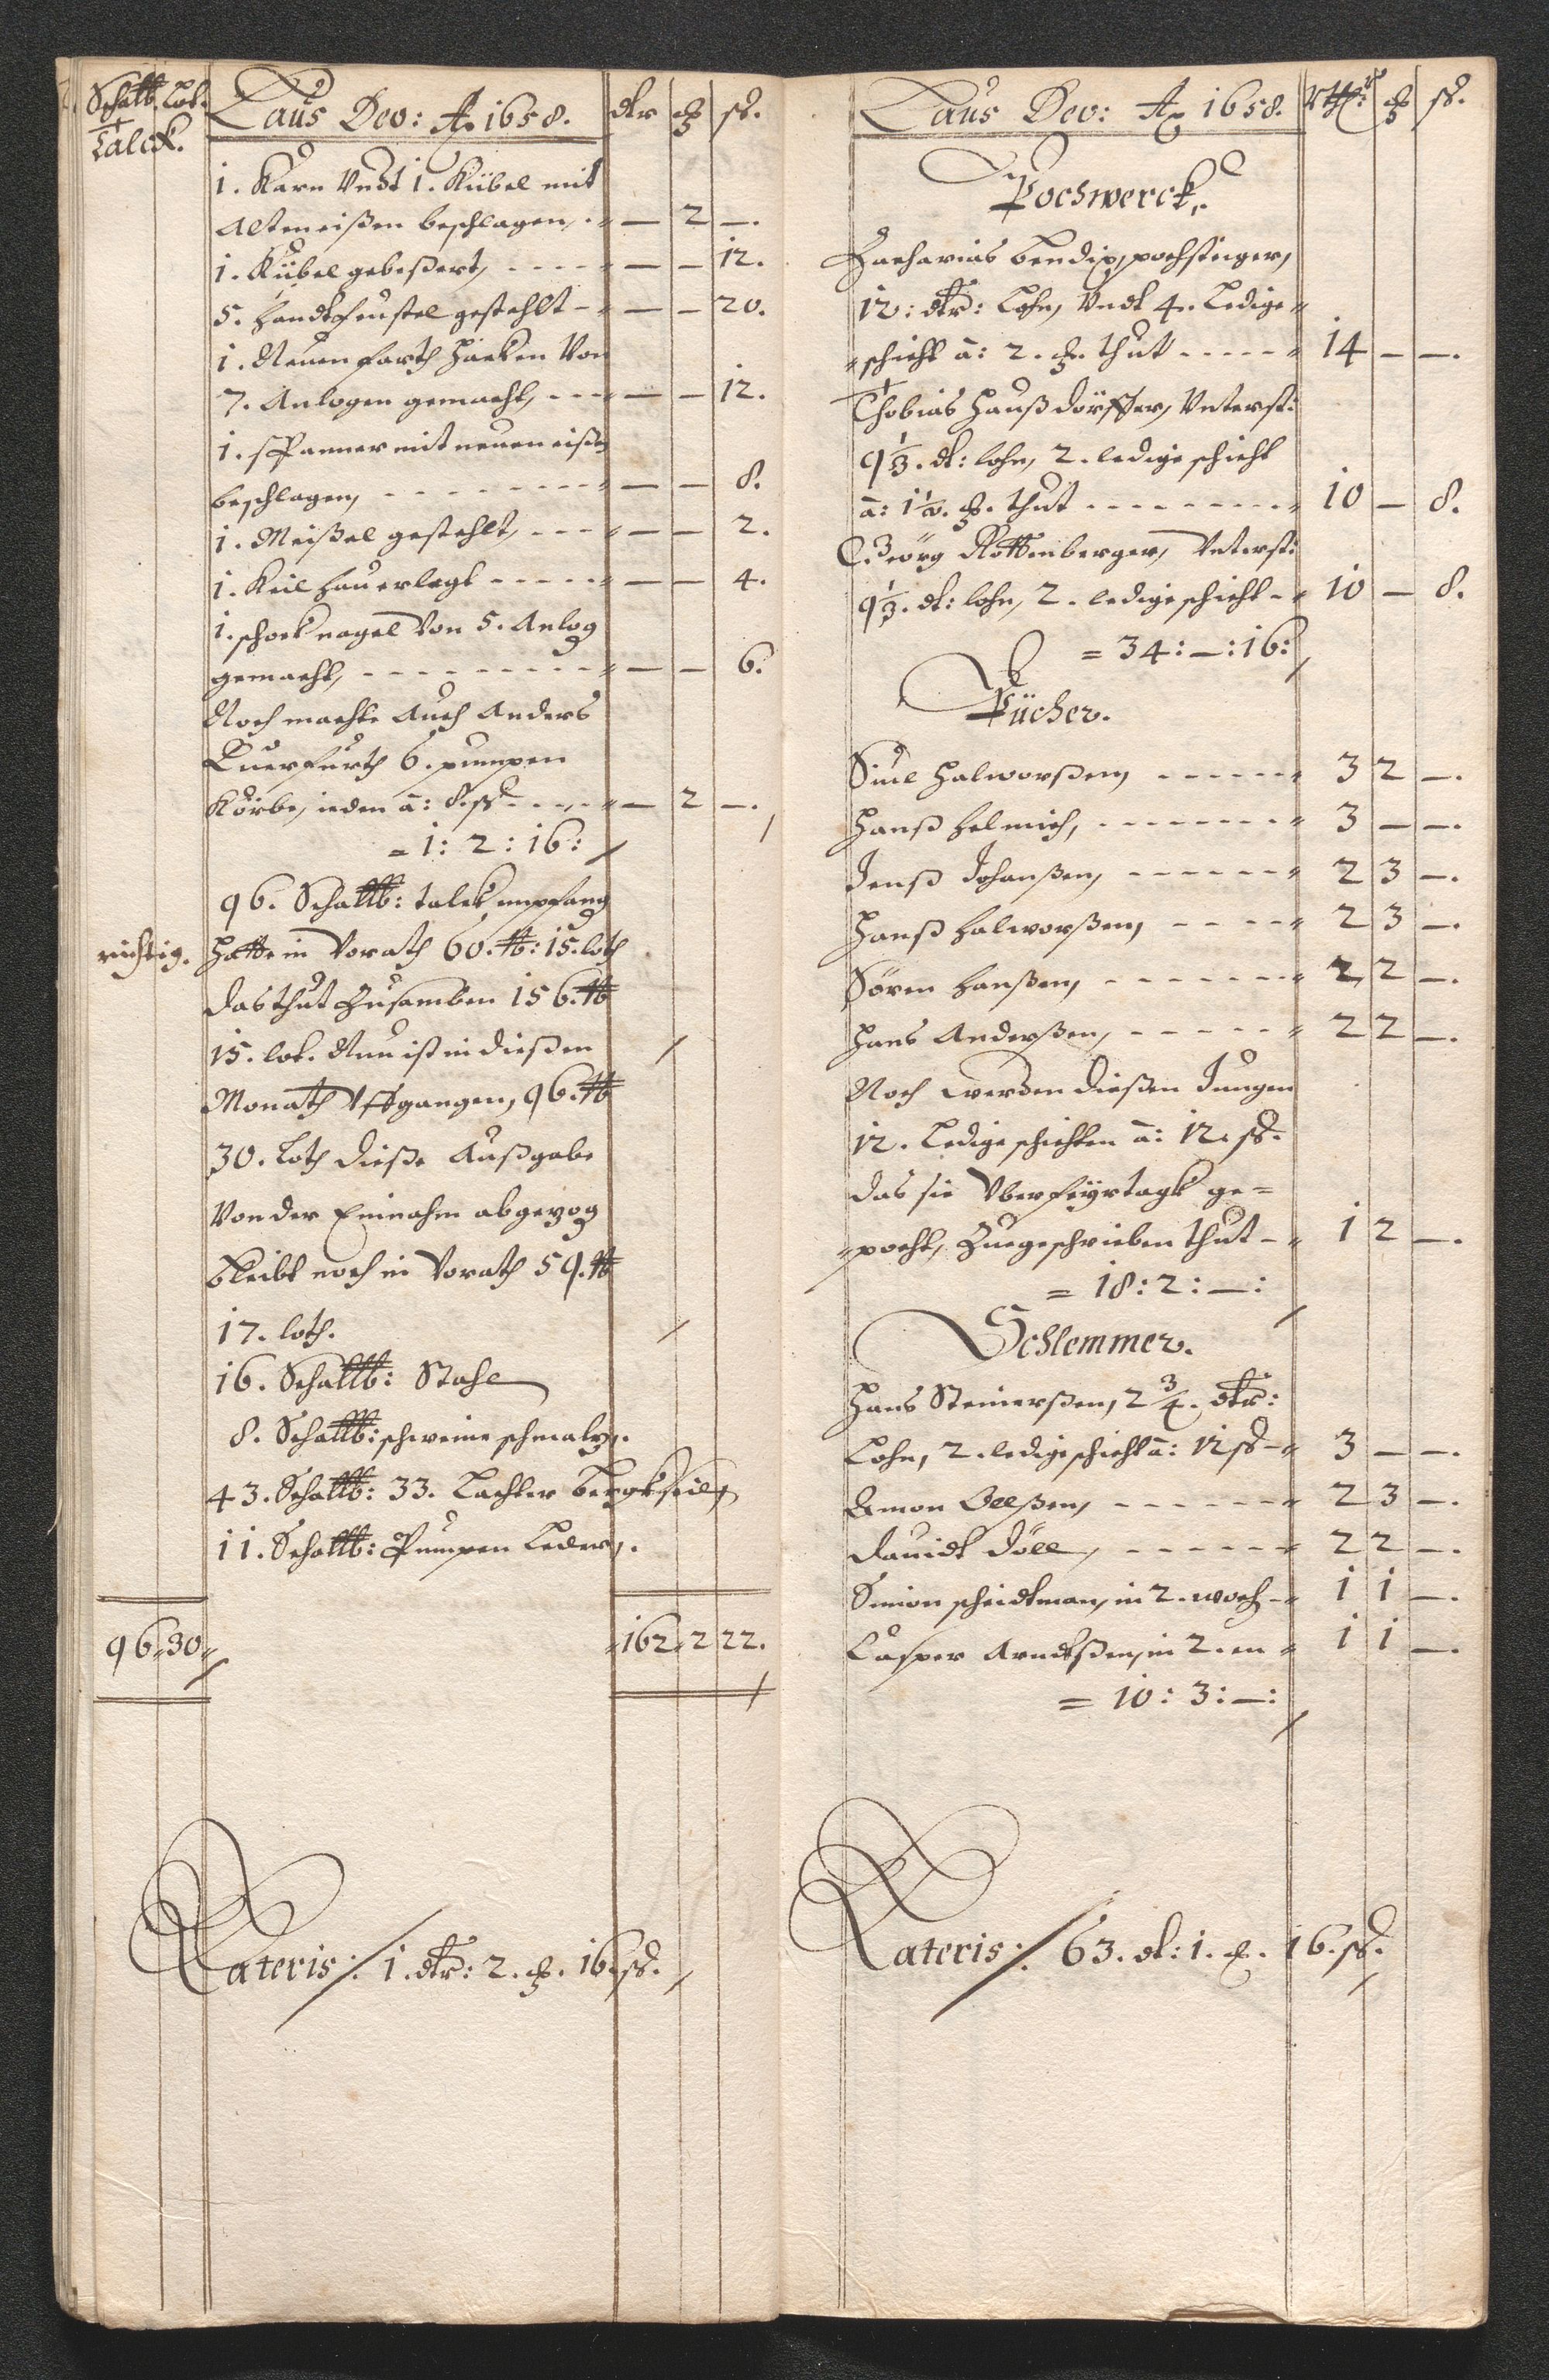 Schal℔. Lot.
Talck.
Laus Deo: Ao 1658.
dlr ȹ ß.
1. Karn Vndt 1. Kübel mit
Altem eißen beschlagen, — 2 —.
1. Kübel gebeßert, - - - - — — 12.
5. Handtfeustel gestehlt - — — 20.
1. Neuen farth Häcken Von
7. Anlogen gemacht, - - - — — 12.
1. spanner mit neuen eißn
beschlagen, - - - - - - - - — — 8.
1. Meißel gestehlt, - - - — — 2.
1. Keil Hauer legt - - - - - — — 4.
1. schock nagel Von 5. Anlog
gemacht, - - - - - - - - - — — 6.
Noch machte Auch Anders
Querfurth 6. pumpen
Körbe, ieden â: 8. ß - - - — 2 —.
= 1: 2: 16:
96. Schal℔: talck empfang
richtig.
Hatte in Vorath 60. ℔: 15. loth
das thut Zusamben 156. ℔
15. lot. Nun ist in dießen
Monath Vffgangen, 96. ℔
30. Loth dieße Außgabe
Von der Einnahm abgezog
bleibt noch in Vorath 59. ℔
17. loth.
16. Schal℔: Stahl
8. Schal℔: schweine schmaltz.
43. Schal℔: 33. Lachter Bergkseil
11. Schal℔: Pumpen Leder.
96 30
162 2 22.
Lateris: 1. dlr: 2. ȹ. 16. ß.
Laus Deo: Ao 1658.
Rthlr ȹ ß.
Pochwerck.
Zacharias Bendix, pochsteiger,
12: dlr: Lohn, Vndt 4. Ledige
schicht â: 2. ȹ. thut - - - - - 14 — —.
Thobias Haußdörffer, Vnterst:
9 1/3. dl: lohn, 2. ledige schicht
â: 1 1/2. ȹ. thut - - - - - - - - - 10 — 8.
Georg Rottenberger, Vnterst:
9 1/3. dl: lohn, 2. ledige schicht - 10 — 8.
= 34: —: 16:
Pücher.
Siul Halworßen, - - - - - - 3 2 —.
Hanß Helmich, - - - - - - - - 3 — —.
Jenß Johanßen, - - - - - - 2 3 —.
Hanß Halworßen, - - - - - 2 3 —.
Sören Hanßen, - - - - - - - 2 2 —.
Hans Anderßen, - - - - - 2 2 —.
Noch werden dießen Jungen
12. Ledige schichten â: 12. ß.
das sie Vber feyrtagk ge=
=pocht, Zuegeschrieben thut - 1 2 —.
= 18: 2: —:
Schlemmer.
Hans Steinerßen, 2 3/4. dlr:
Lohn, 2. ledige schicht â: 12 ß - 3 — —.
Amon Oelßen, - - - - - - 2 3 —.
Dauidt Döll, - - - - - - 2 2 —.
Simon scheidtman, in 2. woch - 1 1 —.
Casper Arndtßen, in 2. en 1 1 —.
= 10: 3: —:
Lateris: 63. dl: 1. ȹ. 16. ß.